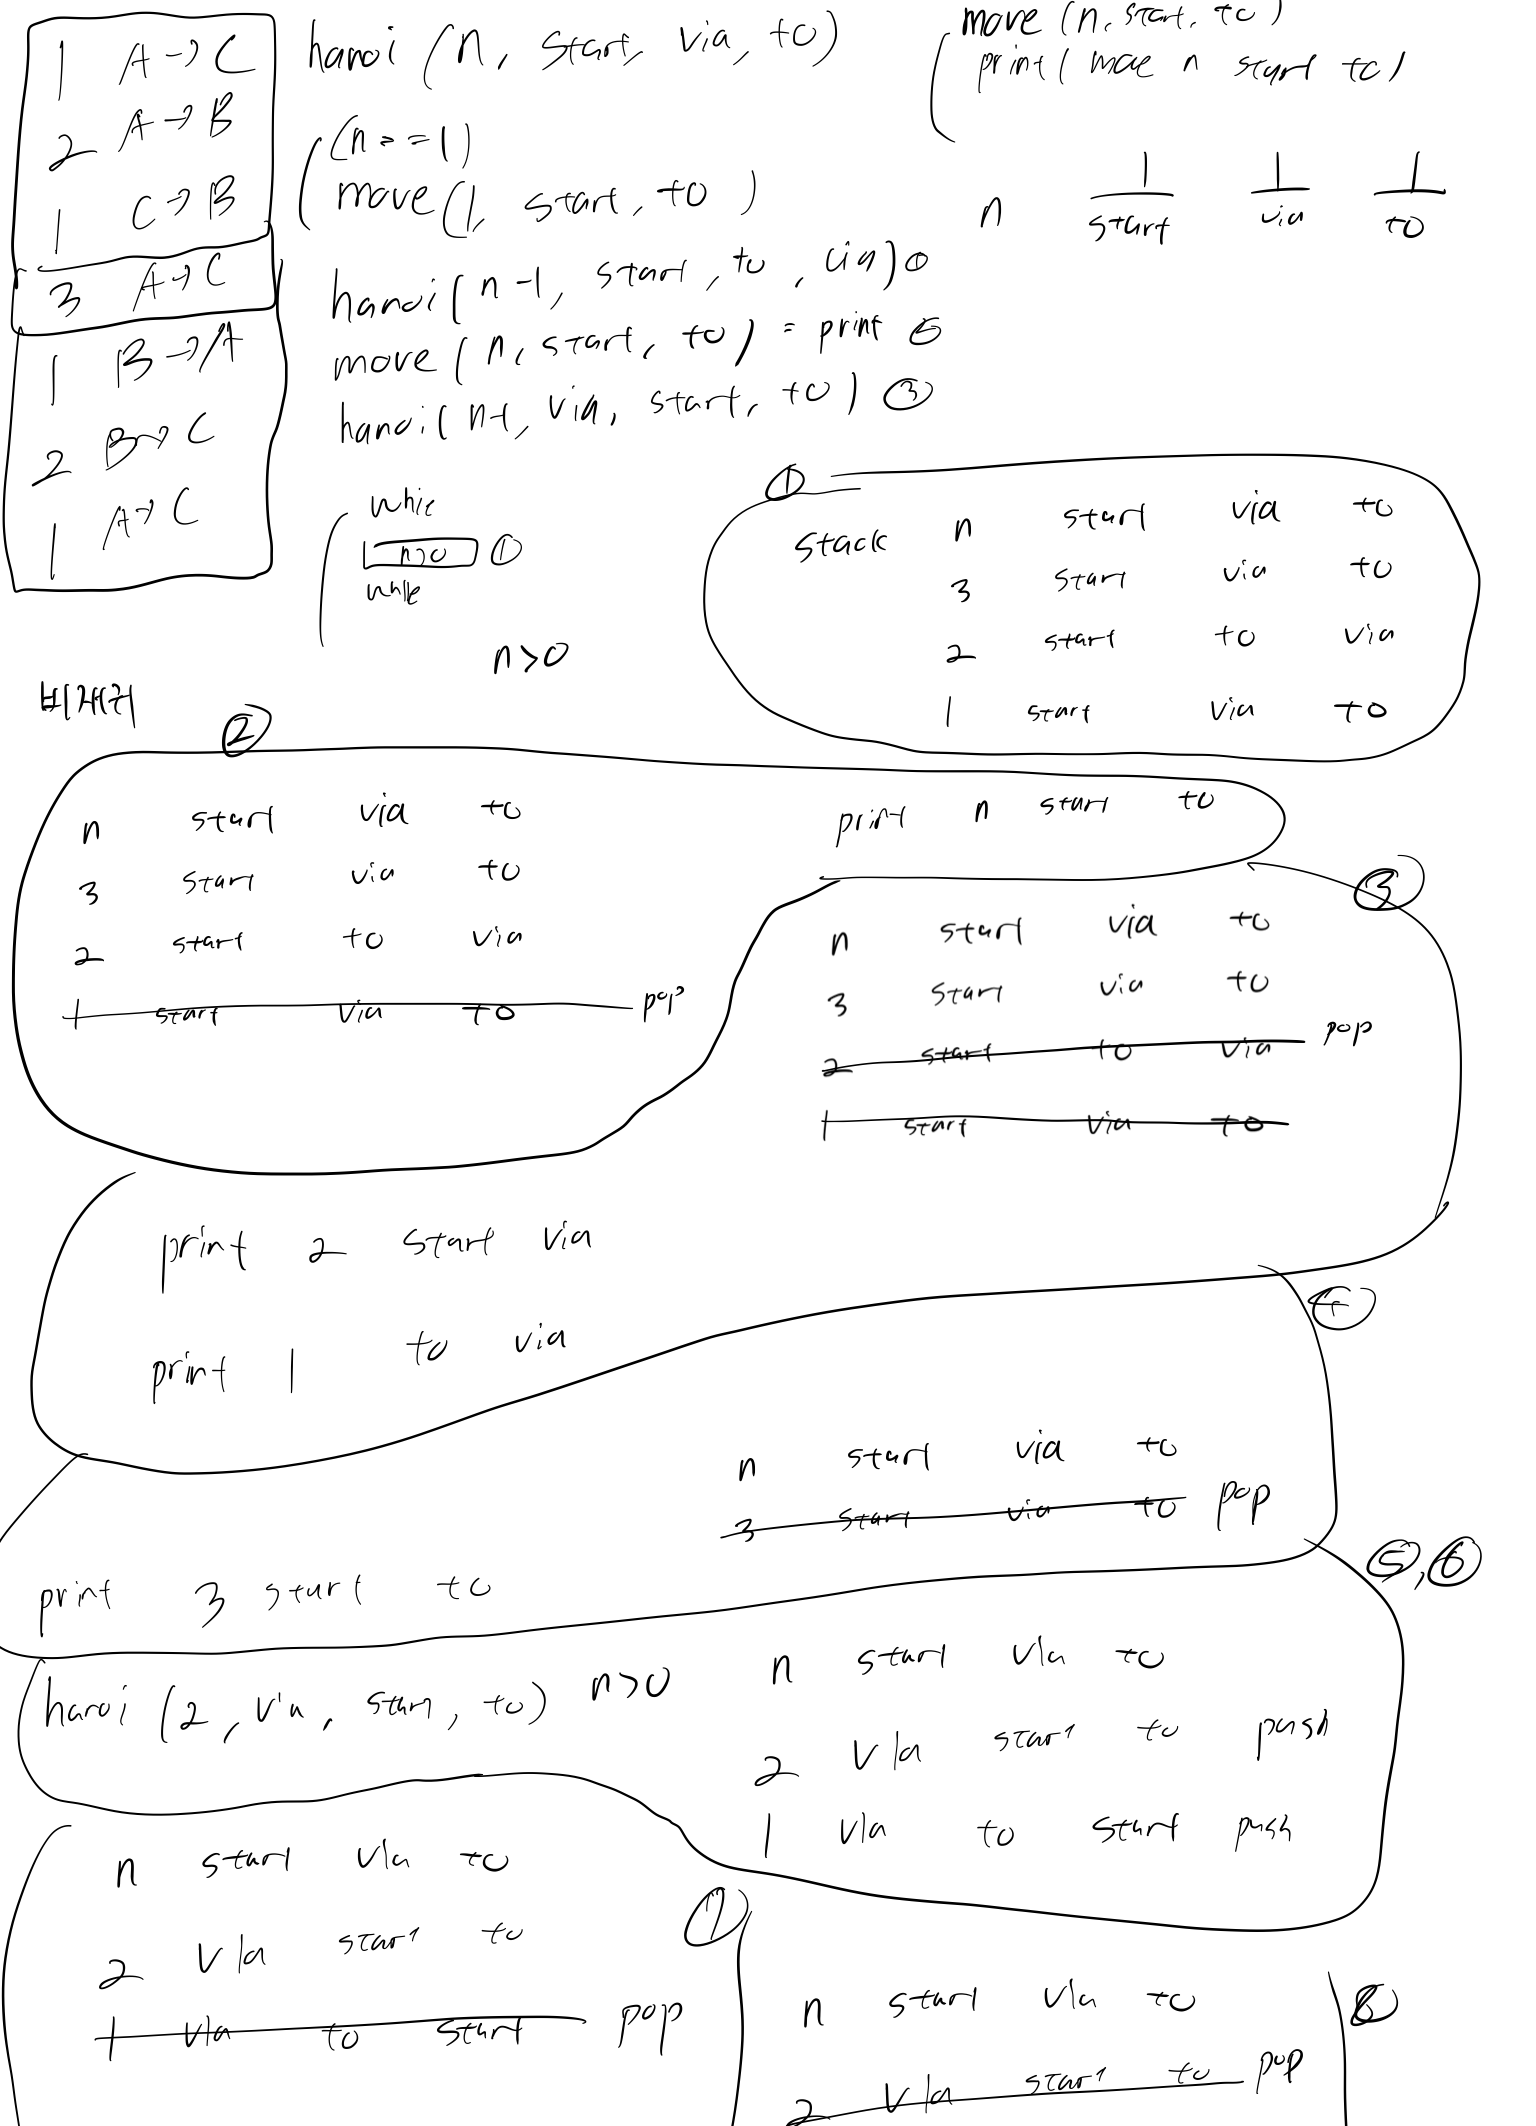 1 A→C
2 A→B
1 C→B
3 A→C
1 B→A
2 B→C
1 A→C
hanoi (n, start, via, to)
(n==1)
move(1, start, to)
hanoi(n-1, start, to, via) ①
move(n, start, to) = print ②
hanoi(n-1, via, start, to) ③
move (n, start, to)
print( move n start to)
n start via to
while
n>0 ①
while
n>0
비재귀
①
stack n start via to
3 start via to
2 start to via
1 start via to
②
n start via to
3 start via to
2 start to via
1 start via to pop
print n start to
③
n start via to
3 start via to
2 start to via pop
1 start via to
print 2 start via
print 1 to via
④
n start via to
3 start via to pop
print 3 start to
⑤,⑥
hanoi (2, via, start, to) n>0
n start via to
2 via start to push
1 via to start push
⑦
n start via to
2 via start to
1 via to start pop
⑧
n start via to
2 via start to pop